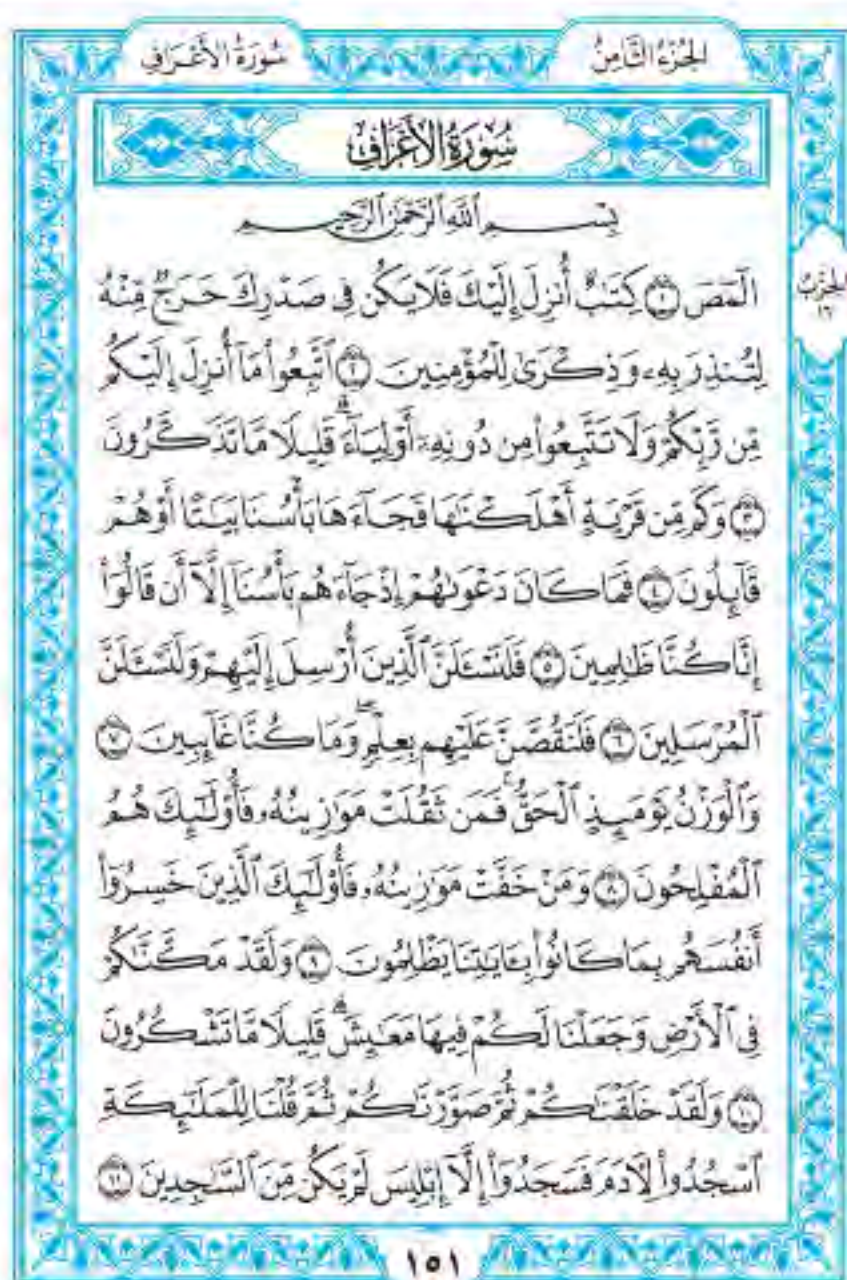 سُورَةُ الْأَعْرَافِ
الجُزْءُ الثَّامِنُ
سُورَةُ الْأَعْرَافِ
بِسْمِ ٱللَّهِ ٱلرَّحْمَٰنِ ٱلرَّحِيمِ
الحِزْبُ
١٦
الٓمٓصٓ ١ كِتَٰبٌ أُنزِلَ إِلَيْكَ فَلَا يَكُن فِى صَدْرِكَ حَرَجٌ مِّنْهُ
لِتُنذِرَ بِهِۦ وَذِكْرَىٰ لِلْمُؤْمِنِينَ ٢ ٱتَّبِعُوا۟ مَآ أُنزِلَ إِلَيْكُم
مِّن رَّبِّكُمْ وَلَا تَتَّبِعُوا۟ مِن دُونِهِۦٓ أَوْلِيَآءَ ۗ قَلِيلًا مَّا تَذَكَّرُونَ
٣ وَكَم مِّن قَرْيَةٍ أَهْلَكْنَٰهَا فَجَآءَهَا بَأْسُنَا بَيَٰتًا أَوْ هُمْ
قَآئِلُونَ ٤ فَمَا كَانَ دَعْوَىٰهُمْ إِذْ جَآءَهُم بَأْسُنَآ إِلَّآ أَن قَالُوٓا۟
إِنَّا كُنَّا ظَٰلِمِينَ ٥ فَلَنَسْـَٔلَنَّ ٱلَّذِينَ أُرْسِلَ إِلَيْهِمْ وَلَنَسْـَٔلَنَّ
ٱلْمُرْسَلِينَ ٦ فَلَنَقُصَّنَّ عَلَيْهِم بِعِلْمٍ ۖ وَمَا كُنَّا غَآئِبِينَ ٧
وَٱلْوَزْنُ يَوْمَئِذٍ ٱلْحَقُّ ۚ فَمَن ثَقُلَتْ مَوَٰزِينُهُۥ فَأُو۟لَٰٓئِكَ هُمُ
ٱلْمُفْلِحُونَ ٨ وَمَنْ خَفَّتْ مَوَٰزِينُهُۥ فَأُو۟لَٰٓئِكَ ٱلَّذِينَ خَسِرُوٓا۟
أَنفُسَهُم بِمَا كَانُوا۟ بِـَٔايَٰتِنَا يَظْلِمُونَ ٩ وَلَقَدْ مَكَّنَّٰكُمْ
فِى ٱلْأَرْضِ وَجَعَلْنَا لَكُمْ فِيهَا مَعَٰيِشَ ۗ قَلِيلًا مَّا تَشْكُرُونَ
١٠ وَلَقَدْ خَلَقْنَٰكُمْ ثُمَّ صَوَّرْنَٰكُمْ ثُمَّ قُلْنَا لِلْمَلَٰٓئِكَةِ
ٱسْجُدُوا۟ لِـَٔادَمَ فَسَجَدُوٓا۟ إِلَّآ إِبْلِيسَ لَمْ يَكُن مِّنَ ٱلسَّٰجِدِينَ ١١
١٥١